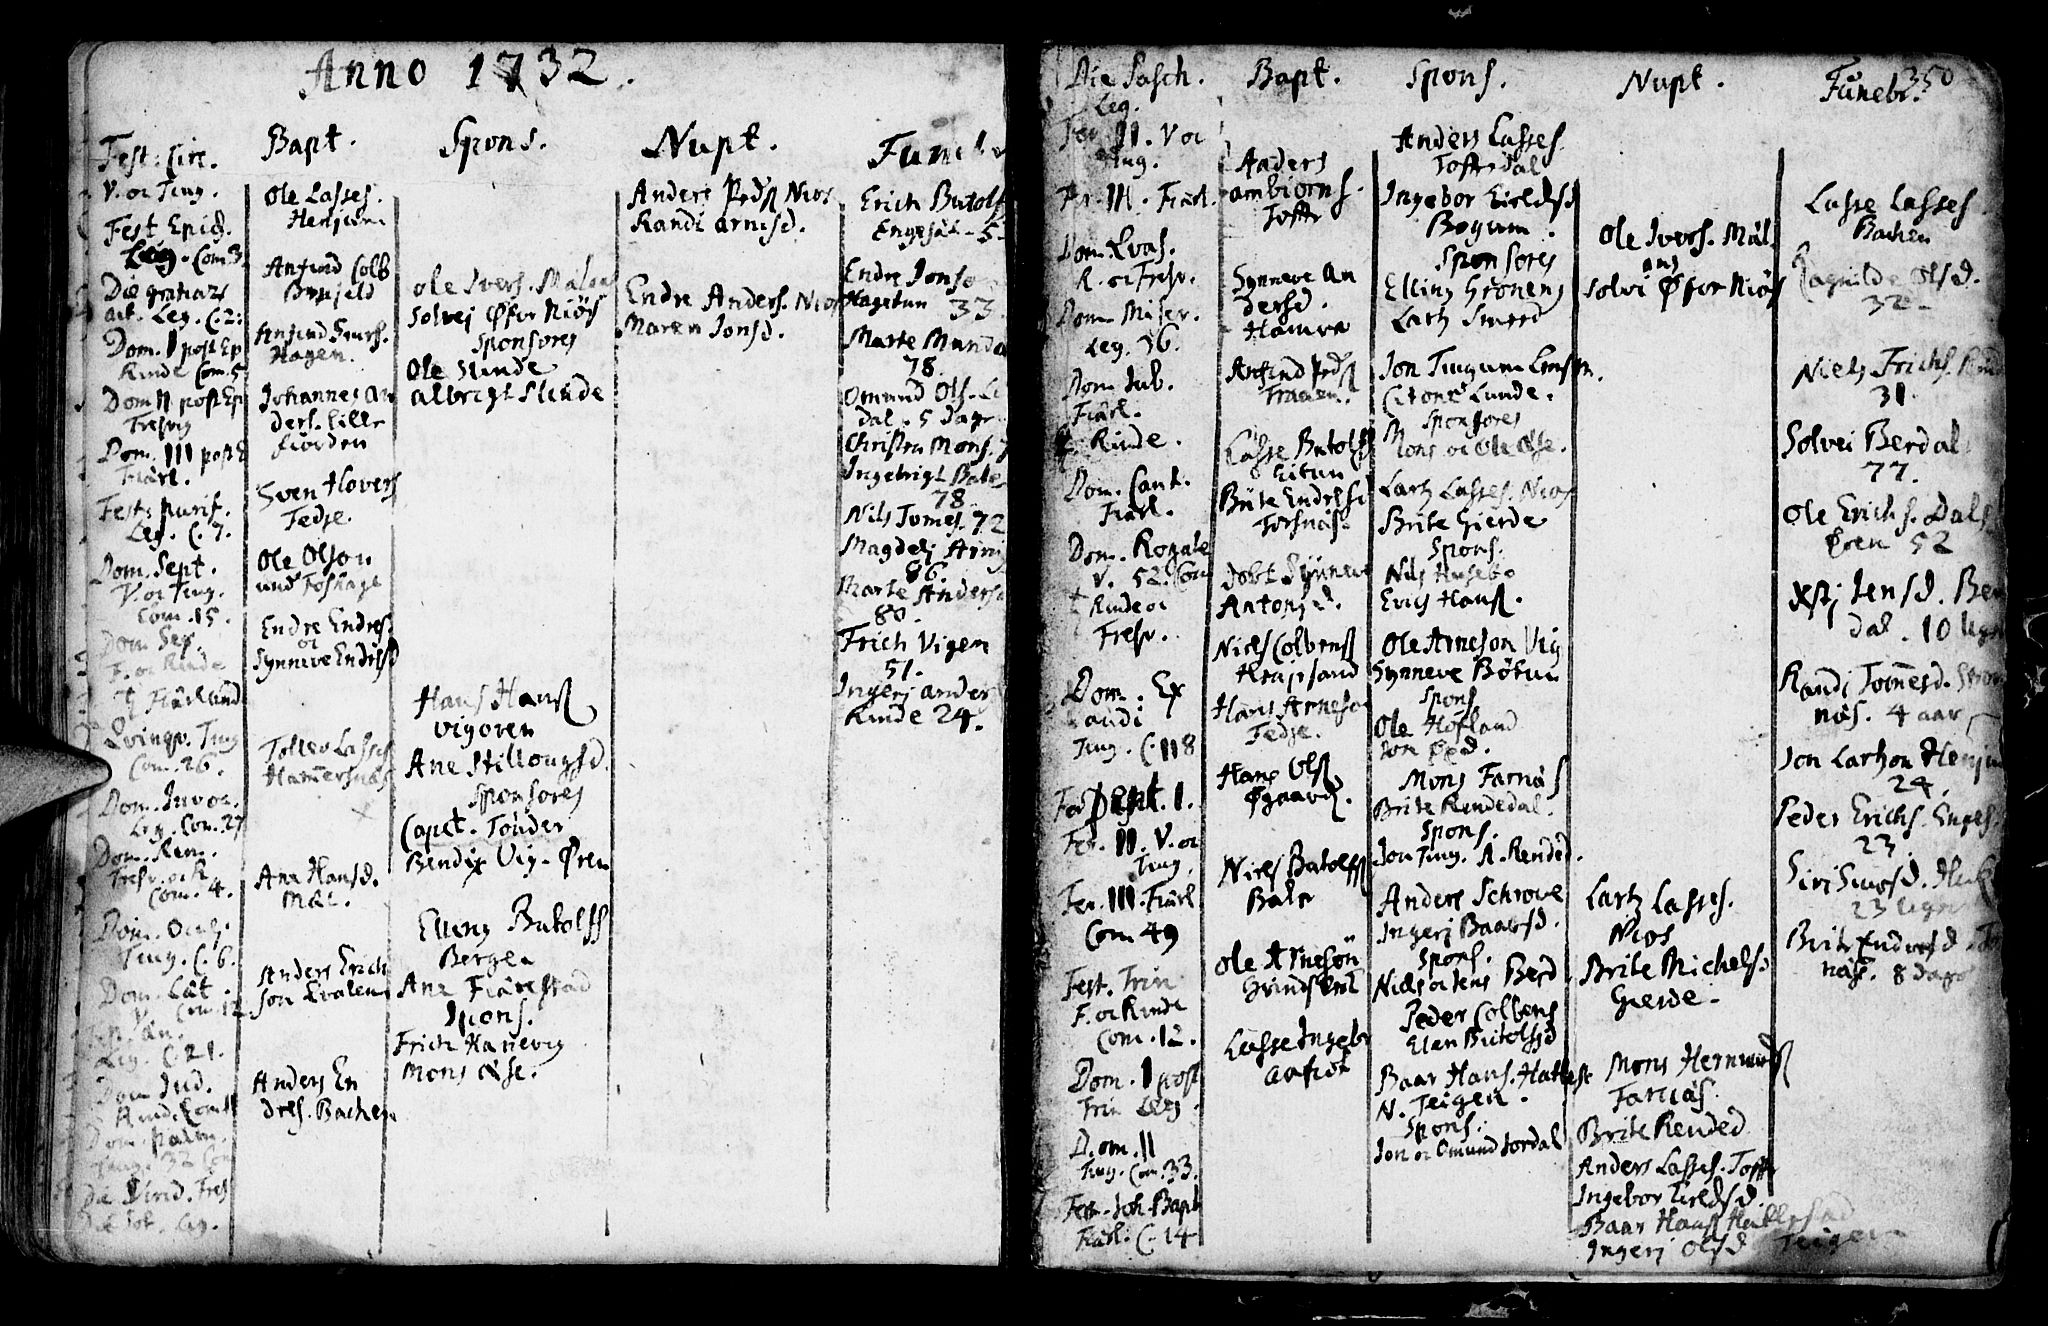 Anno 1732.
Fest: Circ.
V. oc Ting.
Fest Epiph.
Leg. Com 3.
Die gratiar
act. Leg. C. 2:
Dom. I post Ep
Rinde Com. 5
Dom II post Ep
Tresvig
Dom. III post E
Fiärl.
Fest: purif.
Leg. C. 7.
Dom. Sept.
V. oc Ting.
Com. 15.
Dom. Sex.
F. oc Rinde
Fiärlund
Qvinqv. Ting
Com. 26.
Dom. Invoc.
Leg. Com. 27
Dom. Rem.
Tresv. oc R
Com. 4.
Dom. Oculi
Ting. C. 6.
Dom. Læt.
V. Com. 12
Leg. C. 21.
Dom Jud.
Rind. Com
Dom. palm.
Ting. 32 Com
Die Virid. Tres
Leg.
Bapt.
Ole Lasses.
Henjum
Anfind Colb
Brnjeld
Anfind Siurs.
Hagen.
Johannes An
ders. Lille
fiorden
Sven Hovers
Fedje.
Ole Olson
und Foshage
Endre Endres.
oc
Synneve Endrsd
Tollev Lasses
Hamersnäs
Ane Hansd.
Mäl.
Anders Erich
son Qvalem
Anders En
dres. Bachen
Spons.
Ole Ivers. Malen
Solvej Øfer Niös
Sponsores
Ole Slinde
Albrigt Slinde
Hans Hanß
Vigoren
Ane Stillougsd.
Sponsores
Capet. Tönder
Bendix Vig-Øren
Elleng Butolfs
Bergen
Ane Fiærestad
Spons.
Erich Hanevig
Mons Ølse.
Nupt.
Anders Pedß Nios
Randi Arnesd.
Endre Anders. Nios
Maren Jonsd.
Erich Butolf
Engesät - 5-
Endre Jonso
Hagetun 33.
Marte Munda
78.
Omund Ols. Li
Dal. 5 Dage
Christen Mons. 7
Ingebrigt Bale
78.
Nils Tomes. 72
Magdeli Arn
86.
Marte Anders
80.
Erich Vigem
51.
Ingerj Anders
Rinde 24.
350
Die Pasch.
Leg.
Fer. II. V. oc
Ting.
Fer. III. Fiärl.
Dom. Qvas.
R. oc Tresv.
Dom Miser.
Leg. 36.
Dom Jub.
Fiärl.
Rinde.
Dom. Cant.
Fiärl.
Dom. Rogate
V. 52. Com
Rinde oc
Tresv.
Dom. Ex
audi
Ting. C. 118
Fer Pent. 1.
Fer. II. V. oc
Ting
Fer. III. Fiärl
Com 49
Fest. Trin
F. oc Rinde
Com. 12.
Dom. I post
Trin Leg.
Dom. II
Ting. Com. 33.
Fest. Joh. Bapt
Fiärl. C. 14
Bapt.
Anders
Ambiorns.
Toffte
Synneve An
dersd.
Hamre
Anfind Pedß
Traaen.
Lasse Butolfs
Eitun
Brite Endresd
Torsnäs.
Dobt Synneve
Antonsd.
Niels Colbens
Krajsand
Hans Arneson
Fedje.
Hans Olß
Øgaard.
Niels Butolfs
Bale
Ole Arneson
Grindsker
Lasse Ingebr
Aafiot
Spons.
Anders Lasses
Toftedal
Ingebor Eieldsd
Bogum.
Sponsores
Elling Gronens
Lartz Smed
Jon Tingum
Citone Lunde.
Sponsores
Mons oc Ole Ølse.
Lartz Lasses. Nios
Brite Gierde
Spons.
Nils Husebo
Erics Hanß.
Ole Arneson Vig
Synneve Bötun
Spons
Ole Hofland
Mons Farnäs
Brite Rendedal.
Spons.
Jon Ting. A. Rended.
Anders Schrove
Ingerj Baarsd.
Spons.
Niels oc Jens Berd
Peder Colbens
Elen Butolfsd
Baar Hans. Hatlest
N. Teigen.
Spons.
Jon oc Omund Jordal
Nupt.
Ole Ivers. Mäl.
Solvi Øfer Niös
Lartz Lasses.
Nios
Brite Michelsd
Gierde.
Mons Hermunds
Farnäs.
Brite Rended
Anders Lasses. Toffte
Ingebor Eieldsd.
Baar Hanß Hatlestad
Ingerj Olsd Teigen
Funebr.
Lasse Lasses
Bachen
Ragnilde Olsd.
32-
Niels Erichs. Rind
31.
Solvei Berdal.
77.
Ole Erichs. Dals
Øren 52
Jensd. Ber
dal. 10 Uger
Randj Tomesd.
näs. 4 aar
Jon Lartzon Henjum
24.
Peder Erichs. Enges.
23.
Siri
23 Uger
Brite Endresd. Tors
näs. 8 Dage